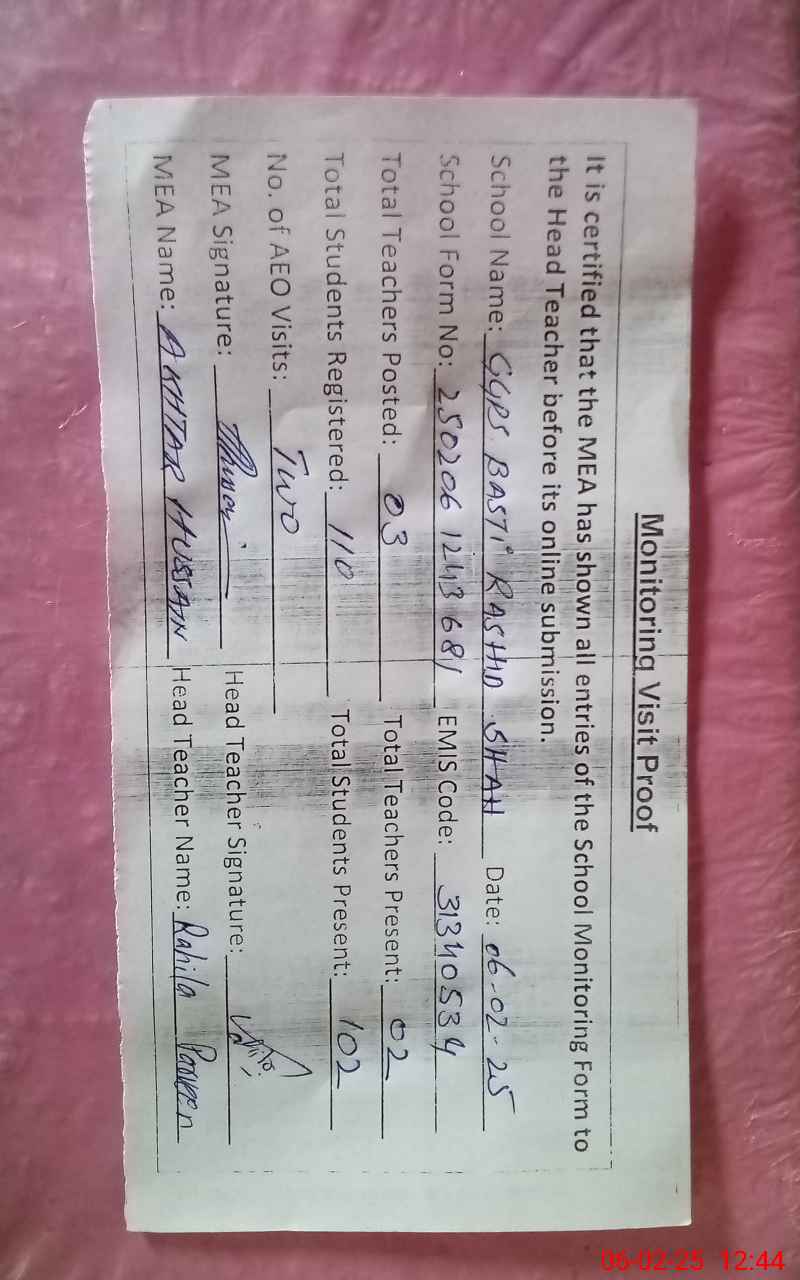 Monitoring Visit Proof
It is certified that the MEA has shown all entries of the School Monitoring Form to
the Head Teacher before its online submission.
School Name: GGPS BASTI RASHID SHAH Date: 06-02-25
School Form No: 250206 1243 681 EMIS Code: 31340534
Total Teachers Posted: 03 Total Teachers Present: 02
Total Students Registered: 110 Total Students Present: 102
No. of AEO Visits: Two
MEA Signature: Head Teacher Signature:
MEA Name: AKHTAR HUSSAIN Head Teacher Name: Rahila Parveen
06-02-25 12:44